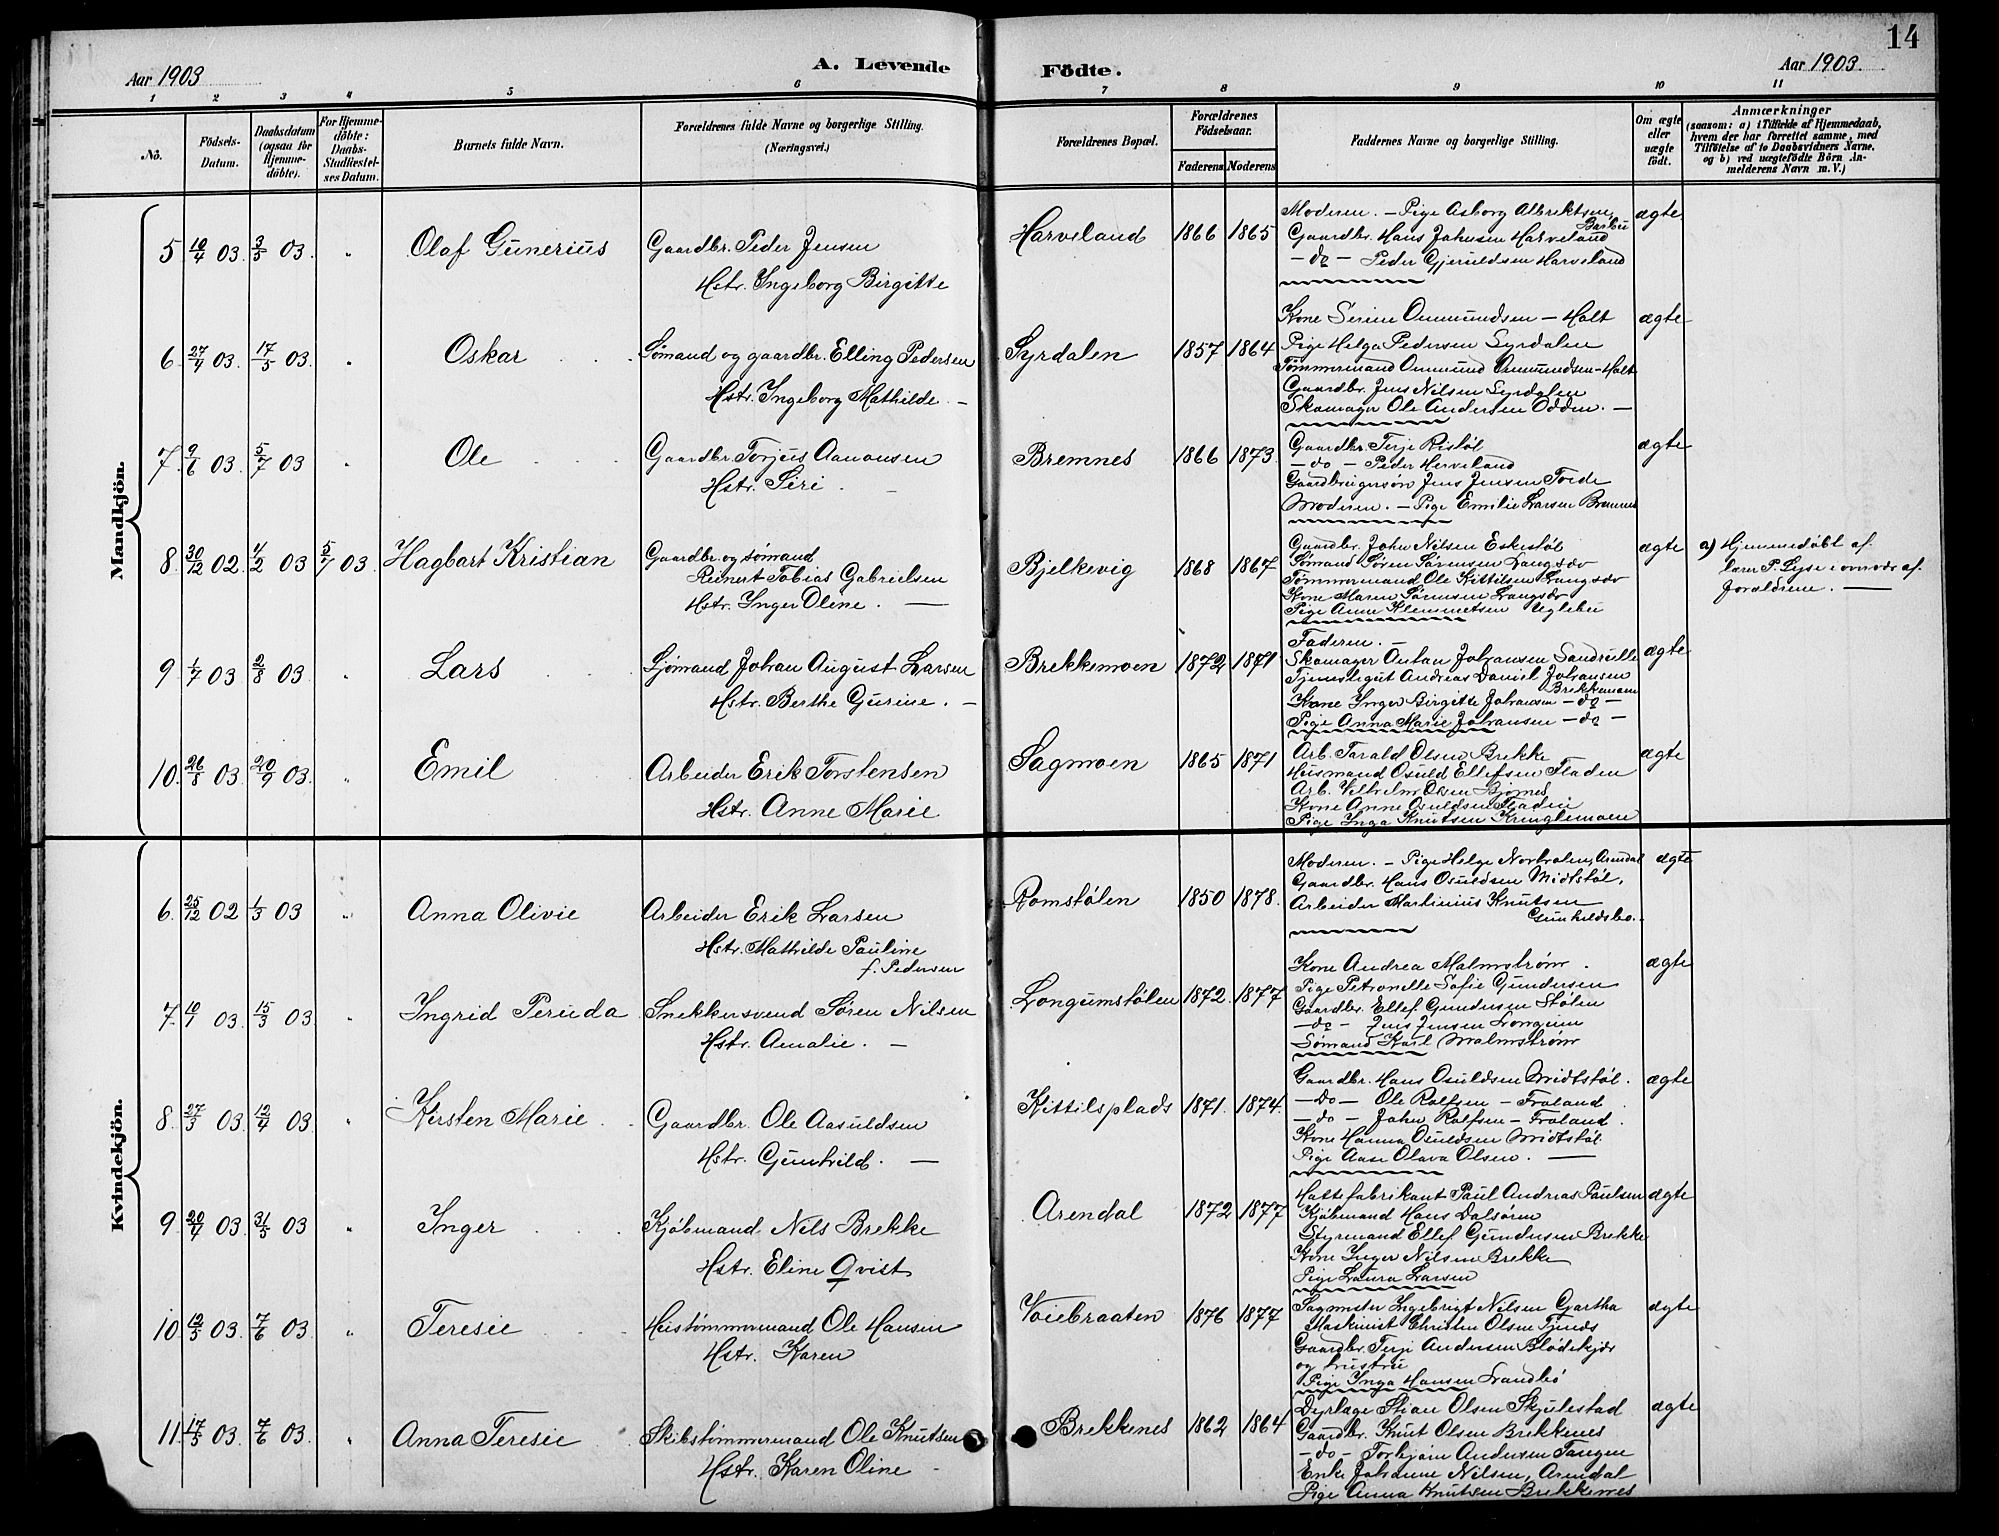 14
Aar 1903
A. Levende Födte.
Aar 1903.
1 2 3 4 5 6 7 8 9 10 11
No.
Födsels-Datum.
Daabsdatum (ogsaa for Hjemme-döbte).
For Hjemme-döbte: Daabs-Stadfæstel-ses Datum.
Barnets fulde Navn.
Forældrenes fulde Navne og borgerlige Stilling.
(Næringsvei.)
Forældrenes Bopæl.
Forældrenes Födselsaar.
Faderens Moderens
Faddernes Navne og borgerlige Stilling.
Om ægte eller uægte födt.
Anmærkninger
(saasom: a) i Tilfælde af Hjemmedaab,
hvem der har forrettet samme, med
Tilföielse af to Daabsvidners Navne.
og b) ved uægtefödte Börn An-
melderens Navn m. V.)
Mandkjön.
5 10/4 03. 3/5 03. " Olaf Gunerius
Gaardbr. Peder Jensen
Hstr. Ingeborg Birgitte
Harveland 1866 1865
Moderen. – Pige Asborg Albrektsen,
Barbu
Gaardbr. Hans Johnsen Harveland
– do – Peder Gjeruldsen Harveland
ægte
6 27/4 03. 17/5 03. " Oskar
Sømand og gaardbr. Elling Pedersen
Hstr. Ingeborg Mathilde. –
Syrdalen 1857 1864
Kone Serine Onmundsen – Holt
Pige Helga Pedersen Syrdalen
Tømmermand Onmund Onmundsen – Holt
Gaardbr. Jens Nilsen Syrdalen
Skomager Ole Andersen Odden. –
ægte
7. 9/6 03. 5/7 03 " Ole
Gaardbr. Torjus Aanonsen
Hstr. Siri –
Bremnes 1866 1873.
Gaardbr. Terje Ristøl
– do – Peder Herveland
Gaardbrugersøn Jens Jensen
Moderen. – Pige Emilie Larsen Bremnes
ægte
8. 30/12 02. 4/2 03 5/7 03. Hagbart Kristian
Gaardbr. og sømand
Reinert Tobias Gabrielsen
Hstr. Inger Oline. –
Bjelkevig 1868 1867
Gaardbr. John Nilsen Eskestøl
Sømand Søren Sørensen Langsæv
Tømmermand Ole Kittilsen Langsæv
Kone Maren Sørensen Langsæv
Pige Anne Klemmetsen Uglebu
ægte
a) Hjemmedøbt af
lærer P. Lyse i overvær af
forældrene. –
9 1/7 03 2/8 03. " Lars
Sjømand Johan August Larsen
Hstr. Berthe Gurine. –
Brekkemoen 1872 1871
Faderen. –
Skomager Anton Johansen
Tjenestegut Andreas Daniel Johansen
Brekkemoen
Kone Inger Birgitte Johansen – do –
Pige Anna Marie Johansen – do –
ægte
10. 26/8 03. 20/9 03. " Emil
Arbeider Erik Torstensen
Hstr. Anne Marie
Sagmoen 1865 1871
Arb. Tarald Olsen Brekke
Husmand Osuld Ellefsen Fladen
Arb. Vilhelm Olsen Bjørnes
Kone Anne Osuldsen Fladen
Pige Inga Knutsen Kringlemoen
ægte
Kvindekjön.
6. 25/12 02 1/3 03 " Anna Olivie
Arbeider Erik Larsen
Hstr. Mathilde Pauline
f. Pedersen
Romstølen 1850 1878.
Moderen. – Pige Helge, Arendal
Gaardbr. Hans Osuldsen Midtstøl,
Arbeider Martinius Knutsen
Gunhildsbo.
ægte
7. 10/1 03. 15/3 03. " Ingrid Peruda
Snekkersvend Søren Nilsen
Hstr. Amalie. –
Longumstølen 1872. 1877
Kone Andrea Malmstrøm.
Pige Petronelle Sofie Gundersen
Gaardbr. Ellef Gundersen Stølen
– do – Jens Jensen Longum
Sømand Karl Malmstrøm
ægte
8. 27/3 03. 12/4 03. " Kirsten Marie
Gaardbr. Ole Aasuldsen
Hstr. Gunhild. –
Kittilsplads 1871. 1874.
Gaardbr. Hans Osuldsen Midtstøl.
– Do – Ole Rolfsen – Froland.
– do – John Rolfsen – Froland.
Kone Hanna Osuldsen Midtstøl.
Pige Aase Olava Olsen. –
ægte
9 20/4 03. 31/5 03 " Inger
Kjøbmand Nils Brekke
Hstr. Eline Qvist
Arendal 1872 1877
Hattefabrikant Paul Andreas Paulsen
Kjøbmand Hans Dalsøren
Styrmand Ellef Gundersen Brekke
Kone Inger Nilsen Brekke
Pige Laura Larsen
ægte
10. 12/5 03. 7/6 03. " Teresie
Hustømmermand Ole Hansen
Hstr. Karen
Voiebraaten 1876 1877
Sagmster Ingebrigt Nilsen Gartha
Maskinist Christen Olsen
Gaardbr. Terje Andersen Blødekjær
og hustru
Pige Inga Hansen Landbø
ægte
11. 17/5 03. 7/6 03. " Anna Teresie
Skibstømmermand Ole Knutsen
Hstr. Karen Oline –
Brekkenes 1862 1864
Stian Olsen Skjulestad
Gaardbr. Knut Olsen Brekkenes
– do – Torbjørn Andersen Tangen
Enke Johanne Nilsen, Arendal
Pige Anna Knutsen Brekkenes
ægte